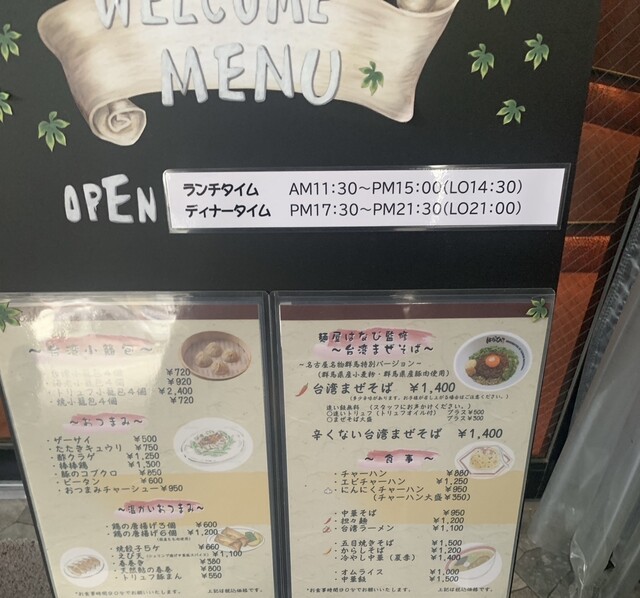 WELCOME
MENU
OPEN
ランチタイム AM11:30～PM15:00(LO14:30)
ディナータイム PM17:30～PM21:30(LO21:00)
小籠包～
¥720
¥920
トリュフ小籠包4個 ¥2,400
・焼小籠包4個 ¥720
～おつまみ～
・ザーサイ ¥500
・たたきキュウリ ¥750
・酢クラゲ ¥1,250
・棒棒鶏 ¥1,300
・豚のコブクロ ¥850
・ピータン ¥600
・おつまみチャーシュー ¥950
～温かいおつまみ～
・鶏の唐揚げ3個 ¥600
・鶏の唐揚げ6個 ¥1,200
・焼餃子5ケ ¥660
・えび天 ¥1,100
・春巻き ¥380
・天然鮎の春巻 ¥800
・トリュフ豚まん ¥550
麺屋はなび監修
～台湾まぜそば～
～名古屋名物群馬特別バージョン～
(群馬県産小麦粉・群馬県産豚肉使用)
台湾まぜそば ¥1,400
追い飯無料 (スタッフにお声かけください。)
○追いトリュフ(トリュフオイル付) プラス¥500
○まぜそば大盛 プラス¥300
辛くない台湾まぜそば ¥1,400
～食事～
・チャーハン ¥880
・エビチャーハン ¥1,250
・にんにくチャーハン ¥950
(チャーハン大盛¥350)
・中華そば ¥950
・担々麺 ¥1,200
・台湾ラーメン ¥1,100
・五目焼きそば ¥1,500
・からしそば ¥1,200
・冷やし中華(夏季) ¥1,400
・オムライス ¥1,000
・中華飯 ¥1,500